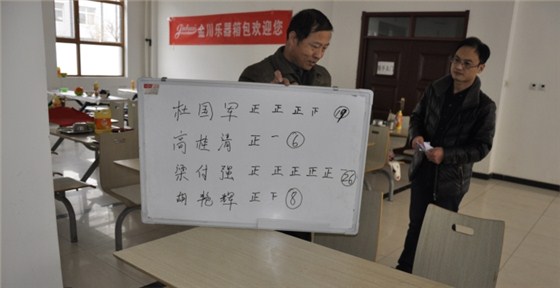 金川乐器箱包欢迎您
杜国军 正 正 正 下
高桂清 正 一 ⑥
梁付强 正 正 正 正 正 ㉖
胡艳辉 正 下 ⑧